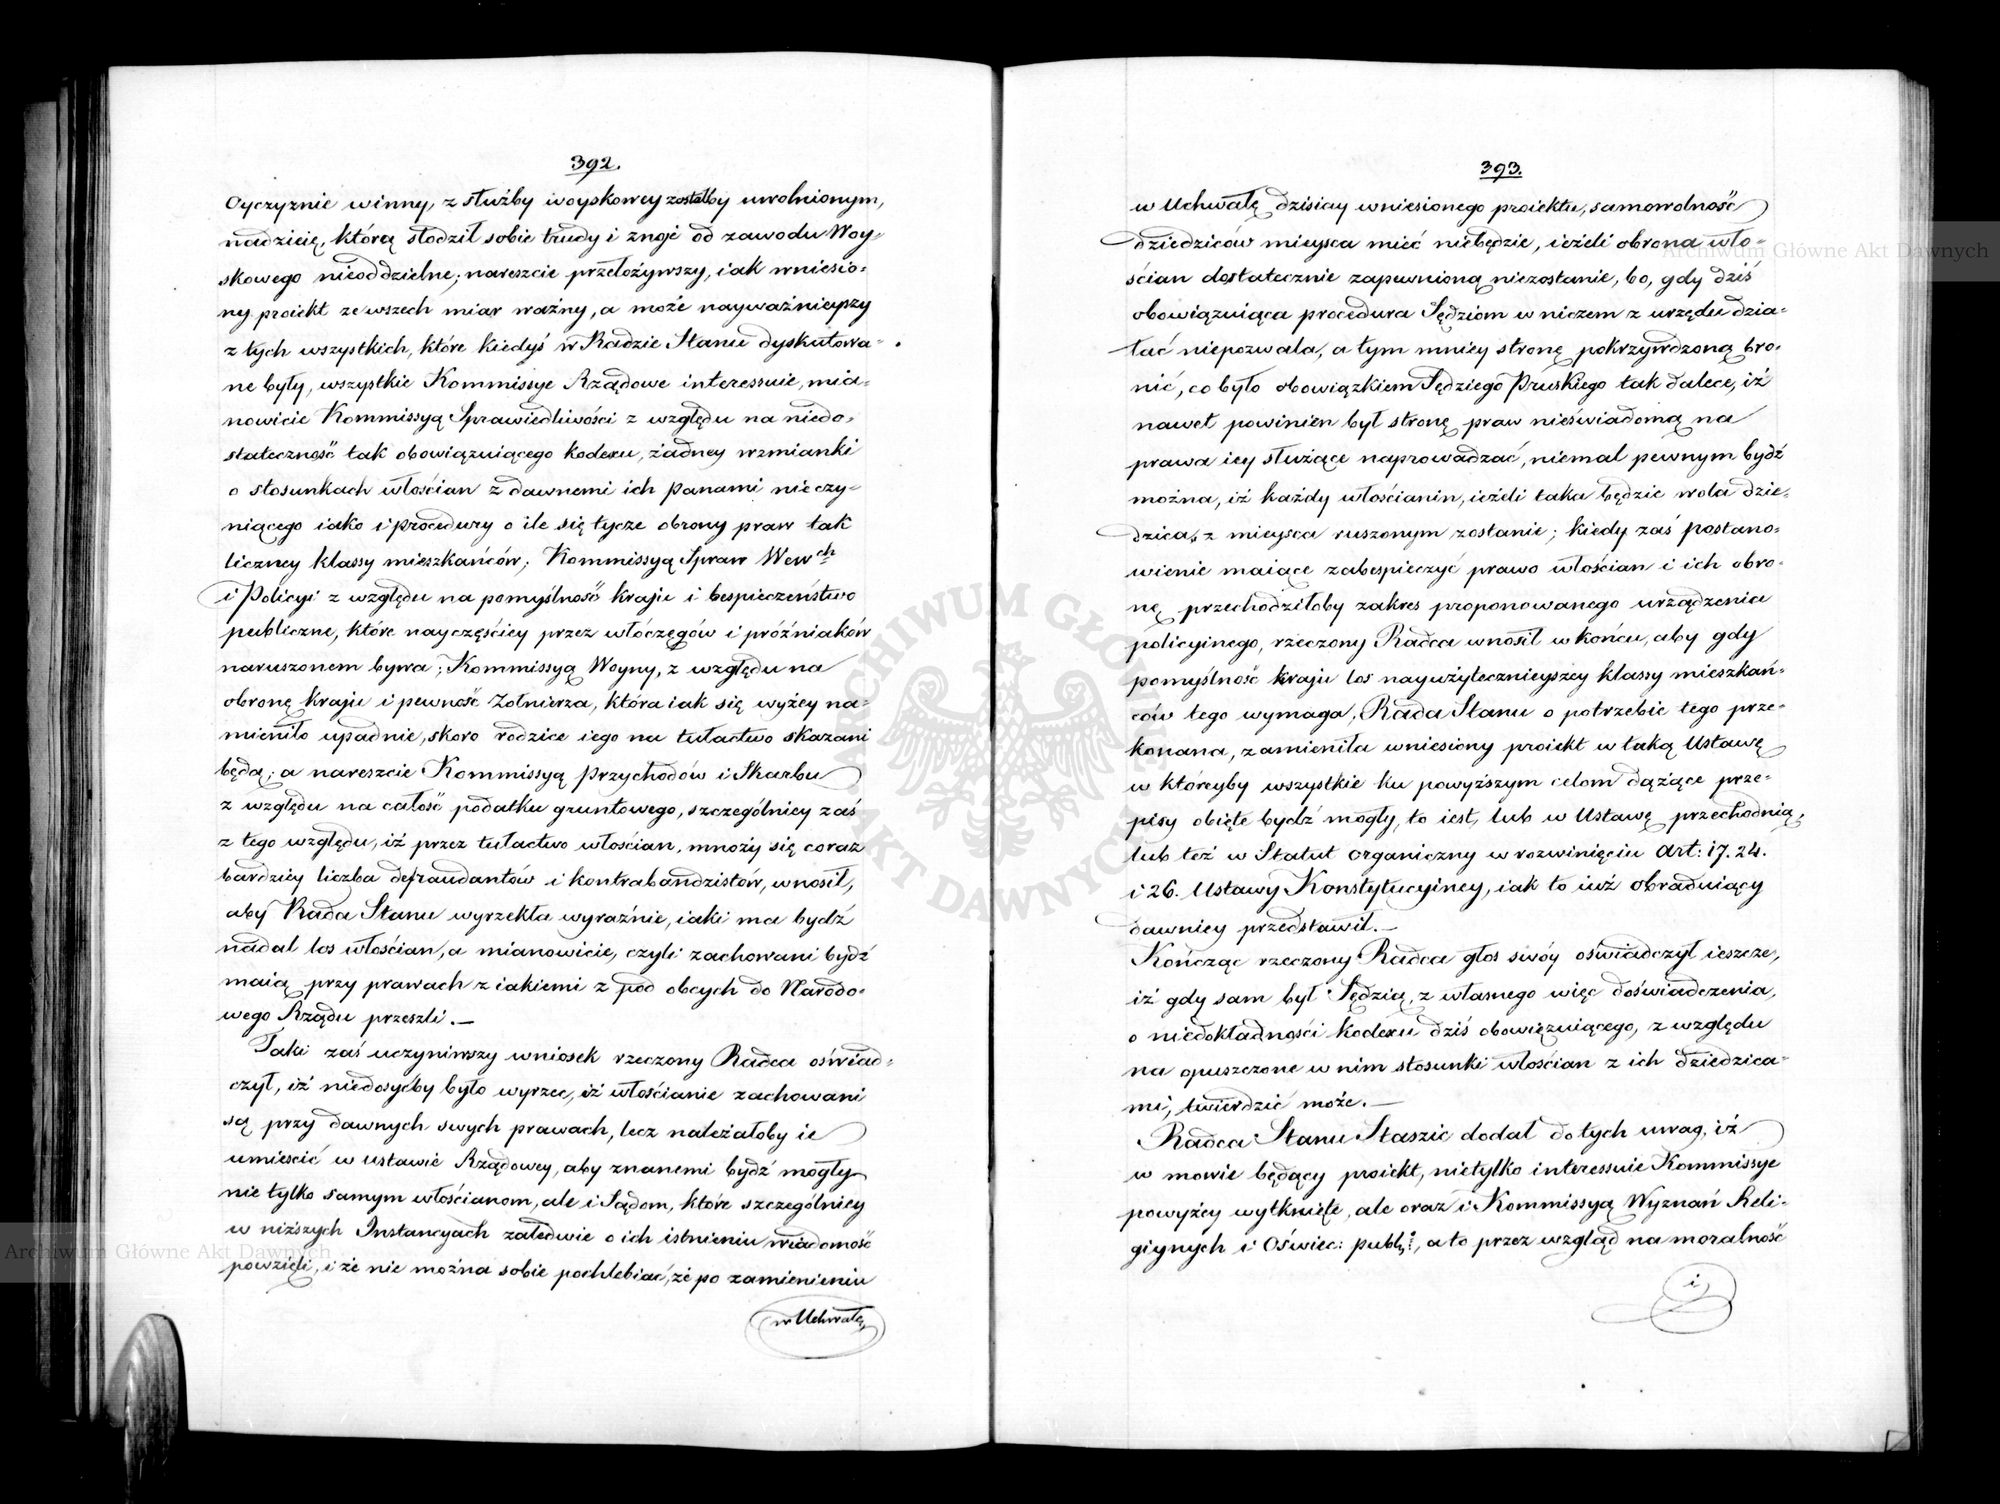 392.
Oyczyznie winny, z służby woyskowey zostałby uwolnionym,
nadzieię, którą słodził sobie trudy i znoje od zawodu Woy-
skowego nieoddzielne; nareszcie przełożywszy, iak wniesio-
ny proiekt ze wszech miar ważny, a może nayważnieyszy
z tych wszystkich, które kiedyś w Radzie Stanu dyskutowa-
ne były, wszystkie Kommissye Rządowe interessuie, mia-
nowicie Kommissyą Sprawiedliwości z względu na niedo-
stateczność tak obowiązuiącego kodexu, żadney wzmianki
o stosunkach włościan z dawnemi ich panami nieczy-
niącego iako i procedury o ile się tycze obrony praw tak
liczney klassy mieszkańców; Kommissyą Spraw Wewch
i Policyi z względu na pomyślność kraju i bespieczeństwo
publiczne, które nayczęściey przez włóczęgów i próźniaków
naruszonem bywa; Kommissyą Woyny, z względu na
obronę kraju i pewność Zołnierza, która iak się wyżey na-
mieniło upadnie, skoro rodzice iego na tułactwo skazani
będą; a nareszcie Kommissyą Przychodów i Skarbu
z względu na całość podatku gruntowego, szczególniey zaś
z tego względu, iż przez tułactwo włościan, mnoży się coraz
bardziey liczba defraudantów i kontrabandzistów, wnosił,
aby Rada Stanu wyrzekła wyraźnie, iaki ma bydź
nadal los włościan, a mianowicie, czyli zachowani bydź
maią przy prawach z iakiemi z pod obcych do Narodo-
wego Rządu przeszli. —
Taki zaś uczyniwszy wniosek rzeczony Radca oświad-
czył, iż niedosyćby było wyrzec, iż włościanie zachowani
są przy dawnych swych prawach, lecz należałoby ie
umieścić w ustawie Rządowey, aby znanemi bydź mogły
nie tylko samym włościanom, ale i Sądom, które szczególniey
w niższych Instancyach zaledwie o ich istnieniu wiadomość
powzięli, i że nie można sobie pochlebiać, że po zamienieniu
w Uchwałę
393.
w Uchwałę dzisiay wniesionego proiektu, samowolność
dziedziców mieysca mieć niebędzie, ieżeli obrona wło-
ścian dostatecznie zapewnioną niezostanie, bo, gdy dziś
obowiązuiąca procedura Sędziom w niczem z urzędu dzia-
łać niepozwala, a tym mniey stronę pokrzywdzoną bro-
nić, co było obowiązkiem Sędziego Pruskiego tak dalece, iż
nawet powinien był stronę praw nieświadomą na
prawa iey służące naprowadzać, niemal pewnym bydź
można, iż każdy włościanin, ieżeli taka będzie wola dzie-
dzica, z mieysca ruszonym zostanie; kiedy zaś postano-
wienie maiące zabespieczyć prawo włościan i ich obro-
nę przechodziłoby zakres proponowanego urządzenia
policyinego, rzeczony Radca wnosił w końcu, aby gdy
pomyślność kraju los nayużytecznieyszey klassy mieszkań-
ców tego wymaga, Rada Stanu o potrzebie tego prze-
konana, zamieniła wniesiony proiekt w taką Ustawę
w któreyby wszystkie ku powyższym celom dążące prze-
pisy obięte bydź mogły, to iest, lub w Ustawę przechodnią,
lub też w Statut organiczny w rozwinięciu Art: 17. 24.
i 26. Ustawy Konstytucyiney, iak to iuż obraduiący
dawniey przedstawił. —
Kończąc rzeczony Radca głos swóy oświadczył ieszcze,
iż gdy sam był Sędzią, z własnego więc doświadczenia,
o niedokładności kodexu dziś obowięzuiącego, z względu
na opuszczone w nim stosunki włościan z ich dziedzica-
mi, twierdzić może. —
Radca Stanu Staszic dodał do tych uwag, iż
w mowie będący proiekt, nietylko interessuie Kommissye
powyżey wytknięte, ale oraz i Kommissyą Wyznań Reli-
giynych i Oświec: publ:, a to przez wzgląd na moralność
i
Archiwum Główne Akt Dawnych
Archiwum Główne Akt Dawnych
ARCHIWUM GŁÓWNE AKT DAWNYCH